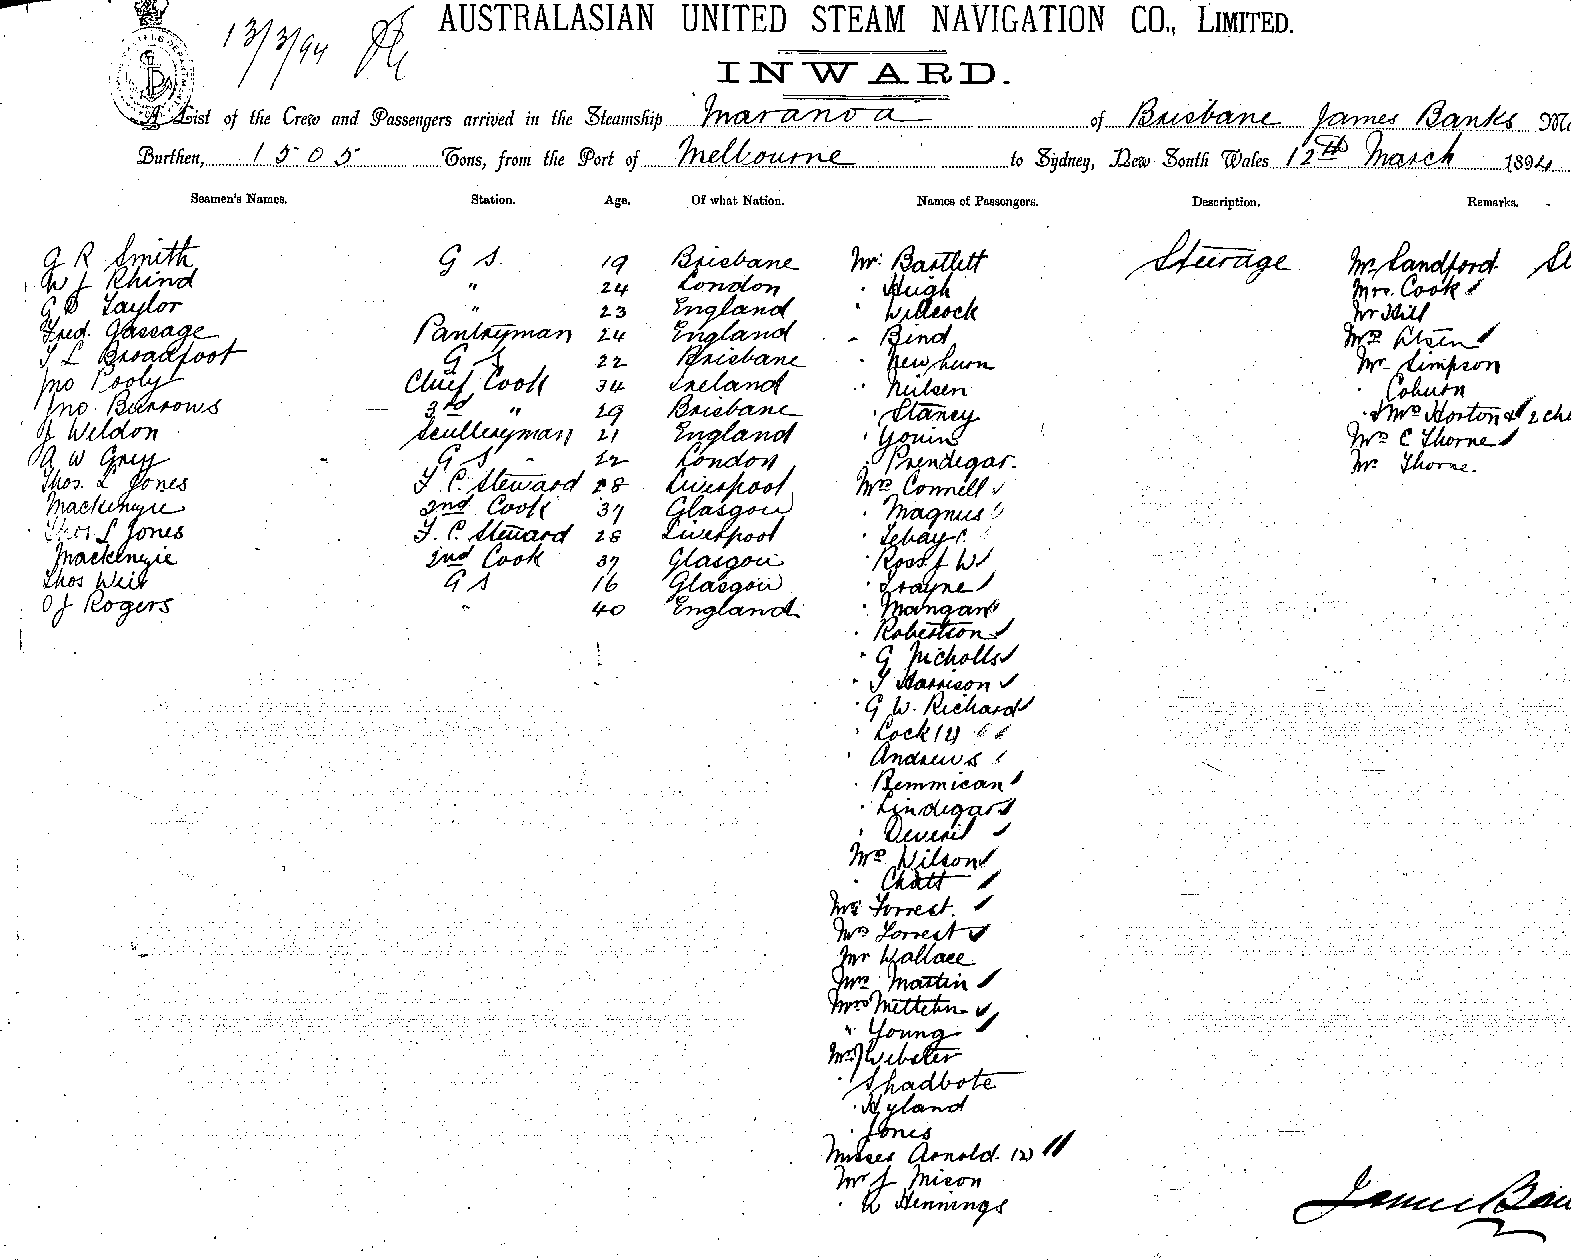 13/3/94
AUSTRALASIAN UNITED STEAM NAVIGATION CO., LIMITED.
INWARD.
A List of the Crew and Passengers arrived in the Steamship Maranoa of Brisbane James Banks
Burthen, 1505 Tons, from the Port of Melbourne to Sydney, New South Wales 12th March 1894
Seamen's Names. Station. Age. Of what Nation. Names of Passengers. Description. Remarks.
G R Smith G S. 19 Brisbane Mr. Bartlett Steerage Mr Sandford
W J Rhind " 24 London · Hugh Mrs. Cook
G D Taylor " 23 England · Willcock Mr Hill
Fred. Gassage Pantryman 24 England Bind Mrs Olsen
T L Broadfoot G S 22 Brisbane Mr Simpson
Jno Pooly Chief Cook 34 Ireland Neilsen Coburn
Jno. Burrows 3rd " 29 Brisbane · Stancy Mrs Horton & 2 ch
J Weldon Sculleryman 21 England · Mrs C Thorne
A W Grey G S 22 London · Prendigar. Mr Thorne.
Thos. L Jones F. C. Steward 28 Liverpool Mrs Connell
Mackenzie 2nd Cook 37 Glasgow · Magnus
Thos L Jones F. C. Steward 28 Liverpool
Mackenzie 2nd Cook 37 Glasgow · Ross J W
Thos Weir G S 16 Glasgow
O J Rogers " 40 England · Mangan
· Robertson
· G Nicholls
· T Harrison
· G W. Richard
· Lock
· Andrews
· Remmican
· Lindegar
· Deveril
Mrs Wilson
· Chatt
Mrs Forrest.
Mrs Forrest
Mr Wallace
Mrs Martin
Mrs
" Young
Webster
· Shadbote
· Hyland
· Jones
Misses Arnold (2)
Mr J Mison
· Hennings
James Ban